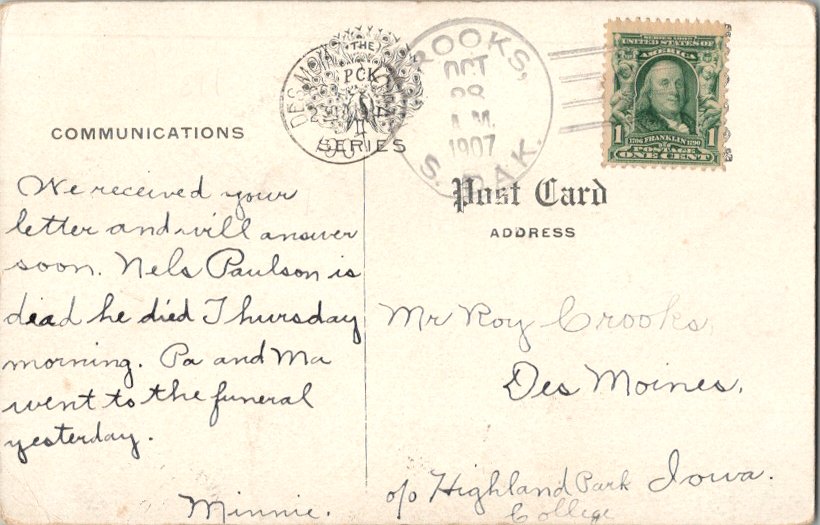 COMMUNICATIONS
THE
PCK
SERIES
DES MOIN
ROOKS,
OCT
28
A.M.
1907
S. DAK.
SERIES 1902
UNITED STATES OF
AMERICA
1
1706 FRANKLIN 1790
1
POSTAGE
ONE CENT
Post Card
ADDRESS
We received your
letter and will answer
soon. Nels Paulson is
dead he died Thursday
morning. Pa and Ma
went to the funeral
yesterday.
Minnie.
Mr Roy Crooks,
Des Moines,
Iowa.
c/o Highland Park
College